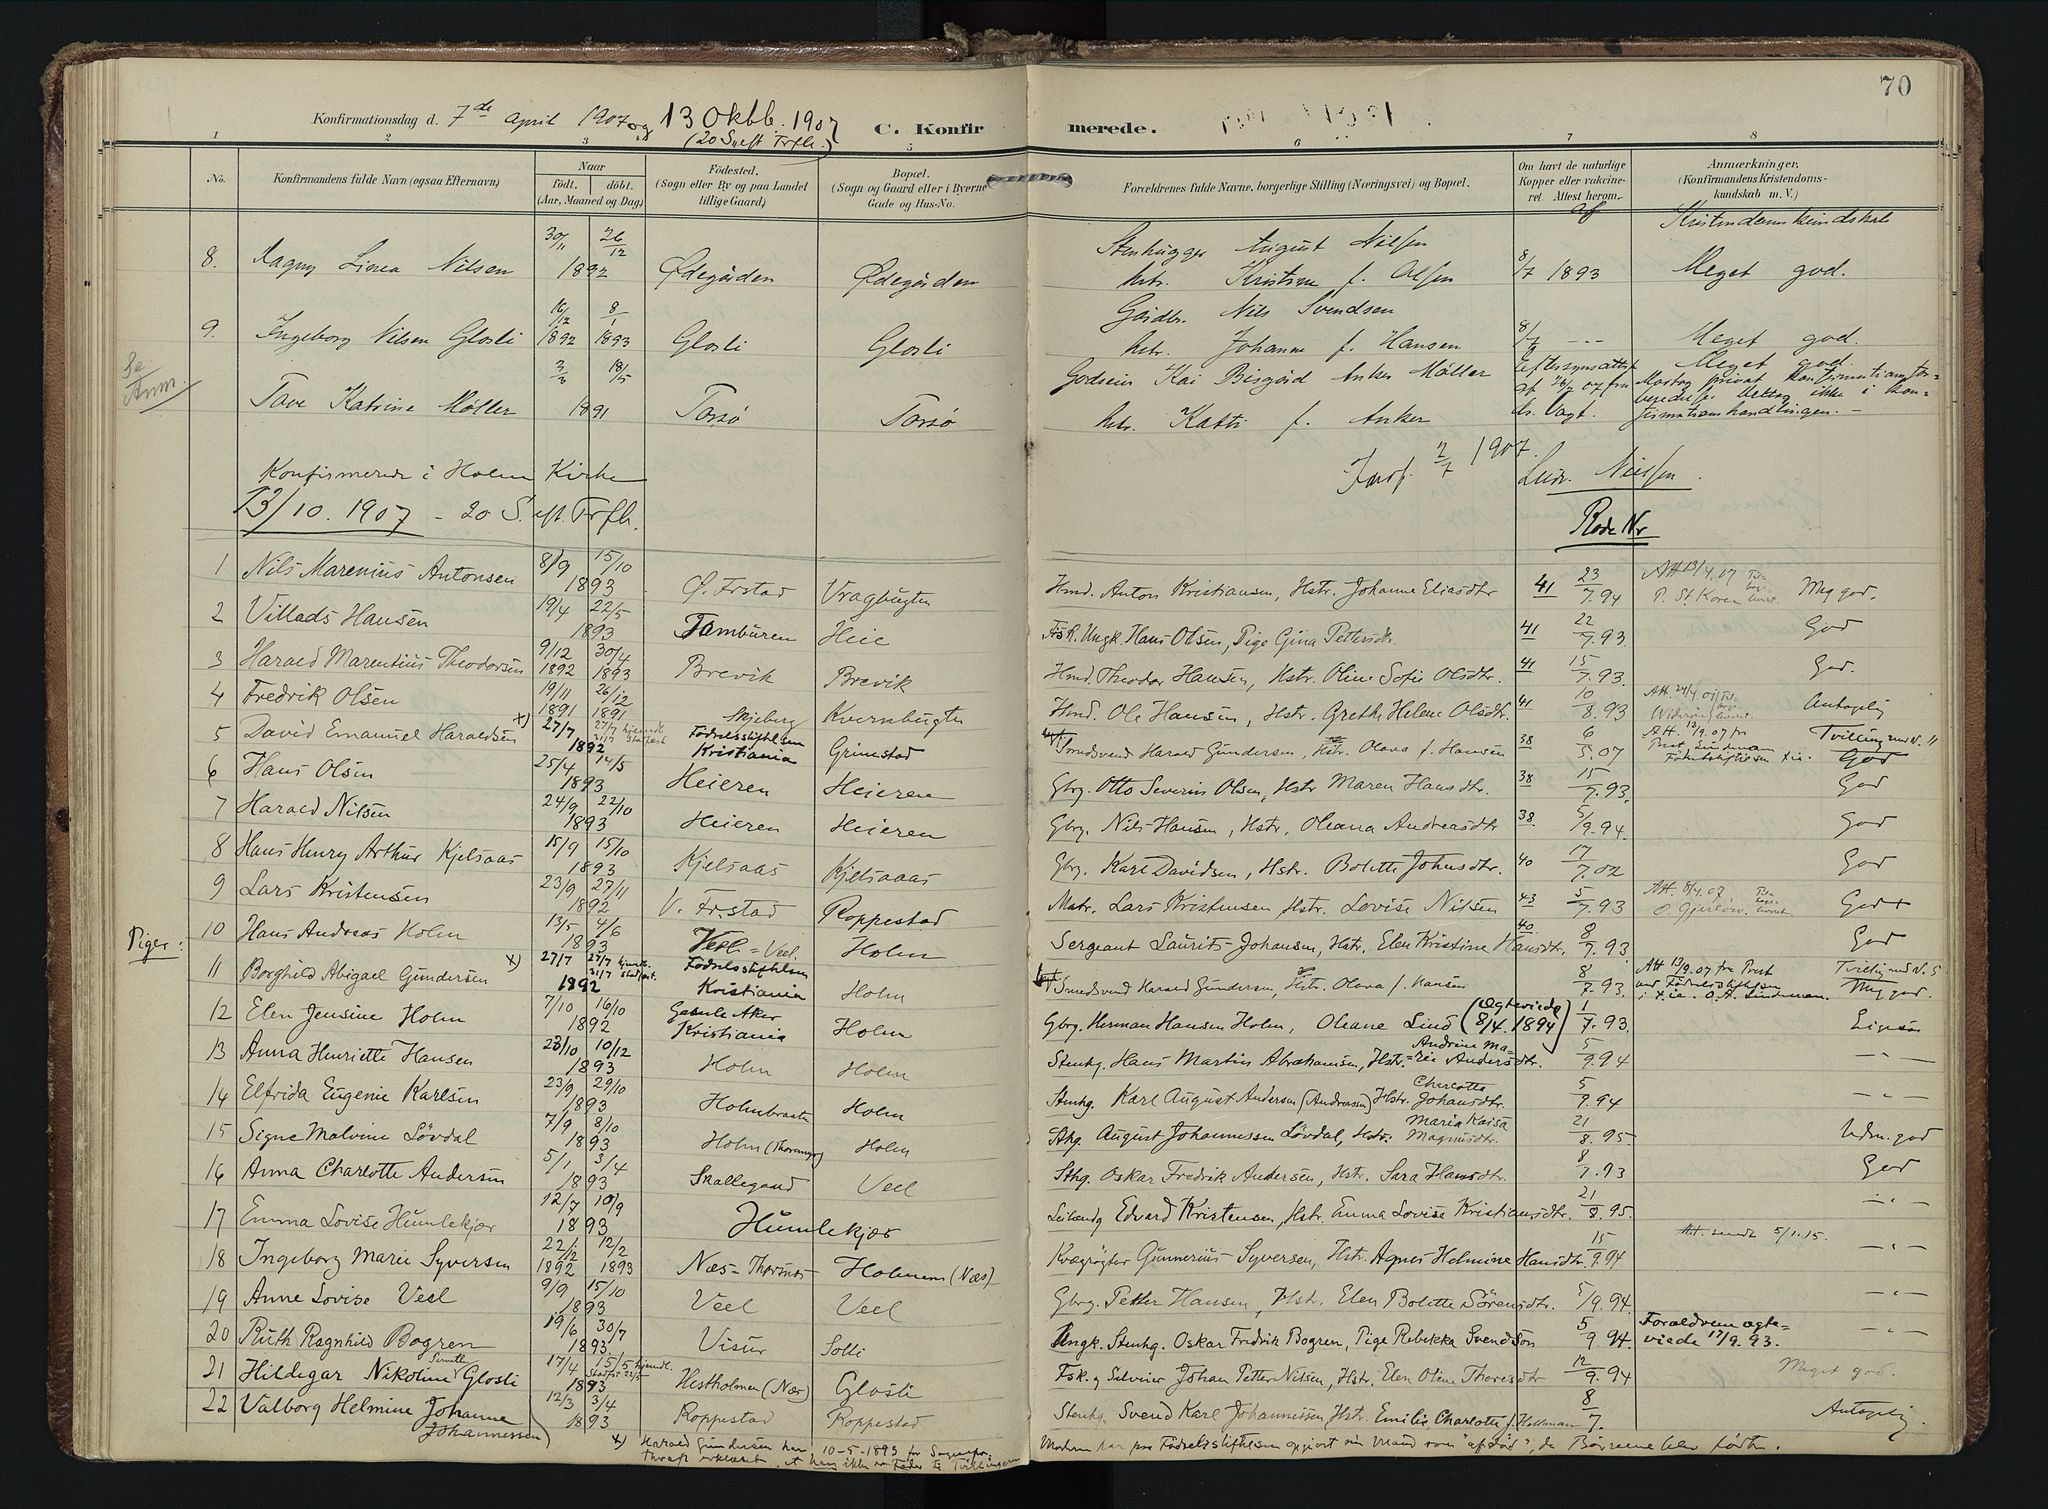 70
Konfirmationsdag d. 7de April 1907 og 13 Oktb. 1907
(20 S. eft. Trfh.)
C. Konfirmerede.
1 2 3 5 6 7 8
No.
Konfirmandens fulde Navn (ogsaa Efternavn)
Naar
födt. döbt.
(Aar, Maaned og Dag)
Födested.
(Sogn eller By og paa Landet
tillige Gaard)
Bopæl.
(Sogn og Gaard eller i Byerne
Gade og Hus-No.
Forældrenes fulde Navne, borgerlige Stilling (Næringsvei) og Bopæl.
Om havt de naturlige
Kopper eller vakcineret.
Attest herom
Anmærkninger.
(Konfirmandens Kristendomskundskab m. V.)
Kristendomskundskab
8. Ragny Linea Nilsen 30/11 26/12 1892 Ødegården Ødegården Stenhugger August Nilsen
hstr. Kristine f. Olsen 8/7 1893 Meget god.
9. Ingeborg Nilsen Glosli 16/12 1892 8/1 1893 Glosli Glosli Gårdbr. Nils Svendsen
hstr. Johanne f. Hansen 8/7 Meget god.
Se
Anm.
Tove Katrine Møller 3/3 18/5 1891 Torsø Torsø Godseier Kai Bisgård Anker Møller
hstr. Katti f. Anker
Meget god.
Mottog privat konfirmationsforberedelse deltog ikke i konfirmationshandlingen. -
2/7 1907.
Ludv. Nielsen
Konfirmerede i Holm Kirke
13/10. 1907 - 20 S. eft. Trfh.
Rode Nr
1 Nils Marenius Antonsen 8/9 15/10 1893 Ø. Frstad Vragbugten Hmd. Anton Kristiansen, Hstr. Johanne Eliasdtr 41 23/7.94 Att 13/4.07 Meg god.
2 Villads Hansen 19/4 22/5 1893 Tambüren Heie Fsk. Ungk. Hans Olsen, Pige Gina Pettersdtr. 41 22/7.93 God
3 Harald Marentius Theodorsen 9/12 1892 30/4 1893 Brevik Brevik Hmd. Theodor Hansen, Hstr. Oline Sofie Olsdtr. 41 15/7.93. God.
4 Fredrik Olsen 19/11 1891 26/12 1891 Skjeberg Kvernbugten Hmd. Ole Hansen, Hstr. Grethe Helene Olsdtr. 41 10/8.93 Antagelig
5 David Emanuel Haraldsen x) 27/7 27/7 hjemdt. 31/7 stadfæst 1892 Födselsstiftelsen Kristiania Grimstad Smedsvend Harald Gundersen, Hstr. Olava f. Hansen 38 6/5.07 Att. 13/9.07 fra Prest Lindman Födselsstiftelsen Xia. Tvilling med N. 11 God
6 Hans Olsen 25/4 14/5 1893 Heieren Heieren Gbrg. Otto Severin Olsen, Hstr Maren Hansdtr. 38 15/7.93. God
7 Harald Nilsen 24/9 22/10 1893 Heieren Heieren Gbrg. Nils Hansen, Hstr. Oleana Andreasdtr 38. 5/9.94. God
8 Hans Henry Arthur Kjelsaas 15/9 15/10 1893 Kjelsaas Kjelsaaas Gbrg. Karl Davidsen, Hstr. Bolette Johnsdtr. 40 17/7.02 God
9 Lars Kristensen 23/9 27/11 1892 V. Fr.stad Roppestad Matr. Lars Kristensen Hstr. Lovise Nilsen 43 5/7.93 Att. 8/4.07 God +
10 Hans Andreas Holm 13/5 4/6 1893 Veel Holm Sergeant Laurits Johansen, Hstr. Elen Kristine Hansdtr. 40. 8/7.93. God
Piger:
11 Borghild Abigael Gundersen x) 27/7 27/7 hjemdt. 31/7 stadfæst. 1892 Födselsstiftelsen Kristiania Holm Smedsvend Harald Gundersen, Hstr. Olava f. Hansen 8/7.93. Att 13/9.07 fra Prest ved Födselsstiftelsen i Xia. O. A. Lindman. Tvilling med N. 5 Meg god.
12 Elen Jensine Holm 7/10 16/10 1892 Gamle Aker Kristiania Holm Gbrg. Herman Hansen Holm, Oleane Lind (Ægteviede 8/4. 1894) 1/7.93.
13 Anna Henriette Hansen 23/10 10/12 1893 Holm Holm Stenhg. Hans Martin Abrahamsen, Hstr. Andrine Marie Andersdtr. 5/9.94 - " -
14 Elfrida Eugenie Karlsen 23/9 29/10 1893 Holmbraaten Holm Stenhg. Karl August Andersen (Andreassen) Hstr. Charlotte Johansdtr. 5/9.94 - " -
15 Signe Malvine Lövdal 7/9 8/10 1893 Holm Holm Sthg. August Johannessen Lövdal, Hstr. Maria Kaisa Magnusdtr. 21/8.95 Udm. god
16 Anna Charlotte Andersen 5/1 3/4 1893 Skallegaard Veel Sthg. Oskar Fredrik Andersen, Hstr. Sara Hansdtr. 8/7.93 God
17 Emma Lovise Humlekjær 12/7 10/9 1893 Humlekjær Leilændg Edvard Kristensen, Hstr. Emma Lovise Kristiansdtr. 21/8.95. - " -
18 Ingeborg Marie Syversen 22/12 1892 12/2 1893 Næs - Thorsnes Holmen (Næs) Kvægrøgter Gunnerius Syversen, Hstr. Agnes Helmine Hansdtr. 15/9.94 Att. sendt 5/1.15. - " -
19 Anne Lovise Veel 9/9 15/10 1893 Veel Veel Gbrg. Petter Hansen, Hstr. Elen Bolette Sörensdtr. 5/9.94. - " -
20 Ruth Ragnhild Bogren 19/6 30/7 1893. Visur Solli Ungk. Stenhg. Oskar Fredrik Bogren, Pige Rebekka Svendsön 5/9.94. Forældrene ægteviede 17/9.93. - " -
21 Hildegar Nikoline Smith Glosli 17/4 15/5 hjemdt. 1893 Hestholmen (Næs) Glosli Fsk. og Selveier Johan Petter Nilsen, Hstr. Elen Oline Thoresdtr 12/9.94 Meget god.
22 Valborg Helmine Johanne Johannessen 12/3 3/4 1893 Roppestad Roppestad Stenhg. Svend Karl Johannessen, Hstr. Emilie Charlotte f. Hallman 8/7. Antagelig.
x) Harald Gundersen har 10-5-1893 for Sognepr.
Thrap erklæret, at han ikke er Fader til Tvillingerne
Moderen har paa Födselsstiftelsen opgivet sin Mand som "afdöd", da Börnene blev födte.